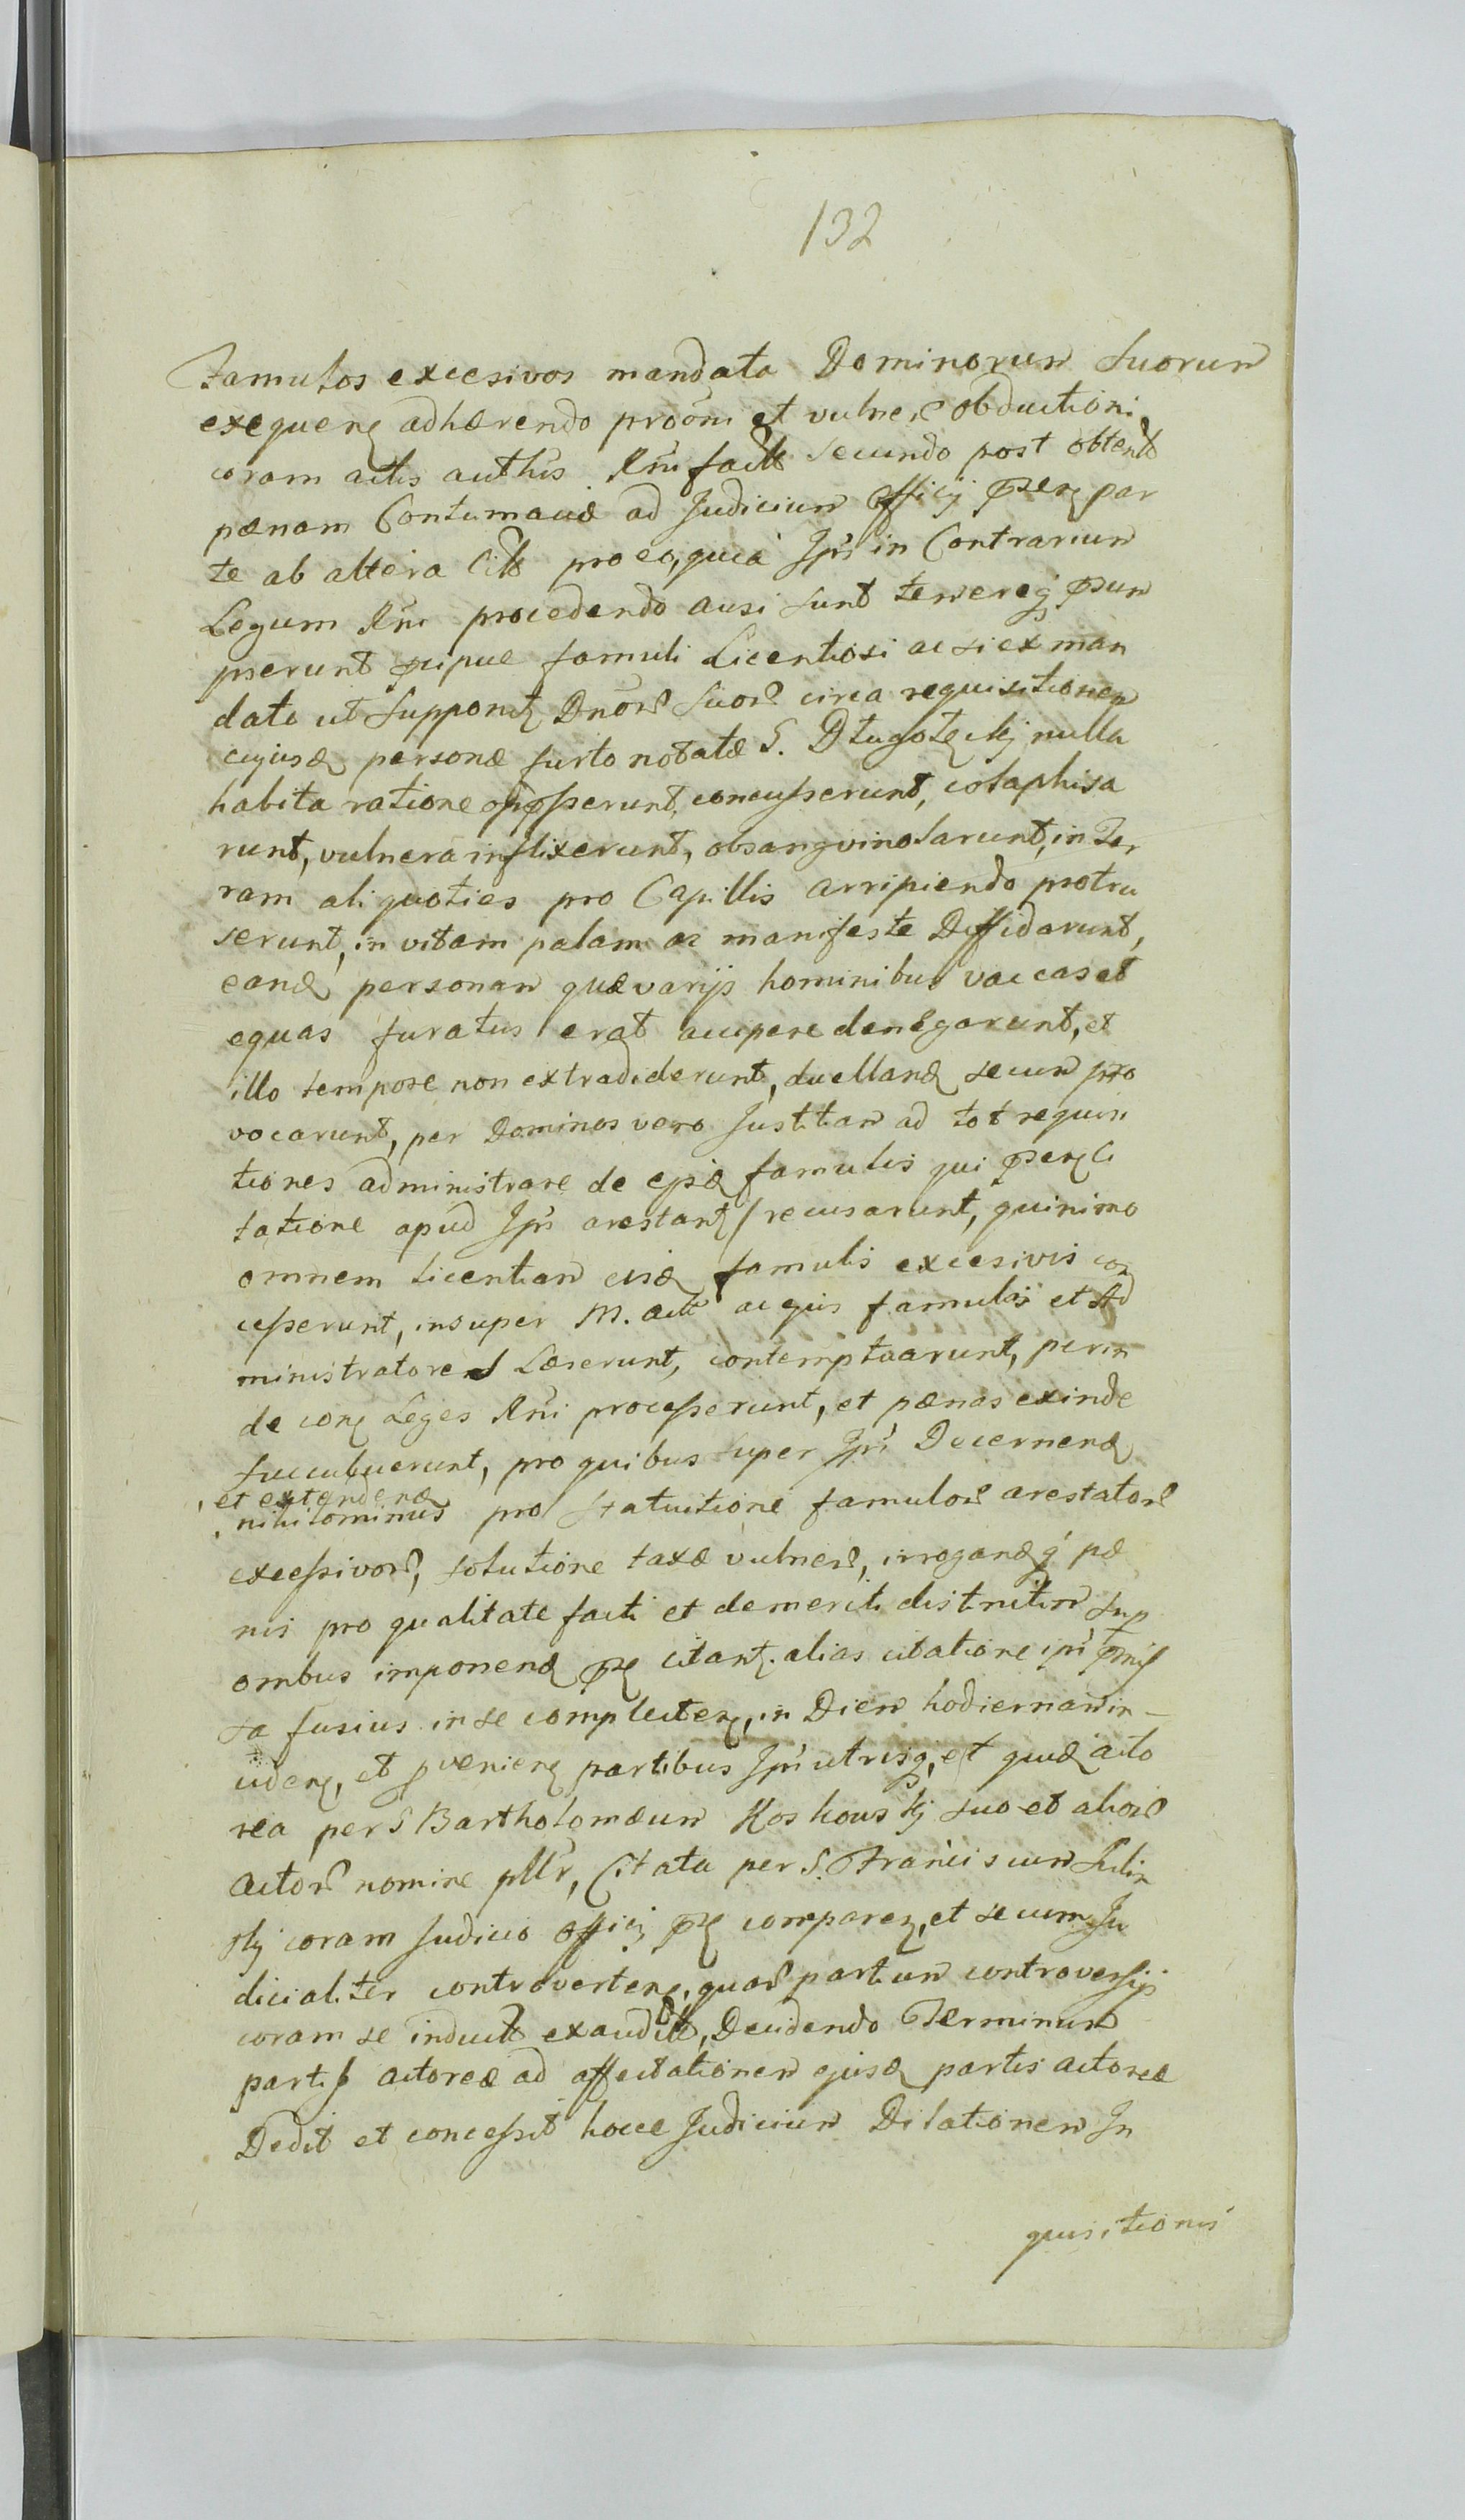 132
Famulos excesivos mandata Dominorum Suorum
exequen adhærendo proōni et vulner obductioni
coram actis authis Rni fact secundo post obtent
pænam Contumaciæ ad Judicium Officij præn par
te ab altera Cit pro eo, quia Ipsi in Contrarium
Legum Rni procedendo ausi sunt temereq præsum
pserunt præcipue famuli Licentiosi ac si ex man
dato ut Supponit Dnor Suor circa requisitionem
cujusd personæ furto notatæ S. Długołęckj nulla
habita ratione oppresserunt, concusserunt, colaphisa
runt, vulnera inflixerunt, obsangvinolarunt, in Ter
ram aliquoties pro Capillis arripiendo protru
serunt, in vitam palam ac manifeste Diffidarunt,
eand personam quæ varijs hominibus vaccas et
equas furatus erat accipere denegarunt, et
illo tempore non extradiderunt, duelland secum pro
vocarunt, per Dominos vero Justitiam ad tot requisi
tiones administrare de ejsd famulis qui præn Ci
tatione apud Ipsos arestant recusarunt, quinimo
omnem licentiam eisd famulis excesivis con
cesserunt, insuper M. act ac ejus famulos et Ad
ministratorem Læserunt, contemptuarunt, perin
de con Leges Rni processerunt, et pænas exinde
succubuerunt, pro quibus super Ipsis Decernend
et extendend
nihilominus pro statuitione famulor arestator
excessivor, solutione taxæ vulner, irrogand q pæ
nis pro qualitate facti et demeriti districtim sup
ombus imponend præ citant. alias citatione ipsi præmis
sa fusius in se complecten, in Diem hodiernam in
ciden, et pvenien partibus Ipsis utrisq, et quid acto
rea per S Bartholomæum Koskowskj suo et alior
actor nomine pltr, Citata per S. Franciscum Sulin
skj coram Judicio Officij præ comparen, et secum Ju
dicialiter controverten, quar partium controversijs
coram se induct exaudit, Decidendo Terminum
partis actoreæ ad affectationem ejusd partis actoreæ
Dedit et concessit hocce Judicium Dilationem In
quisitionis